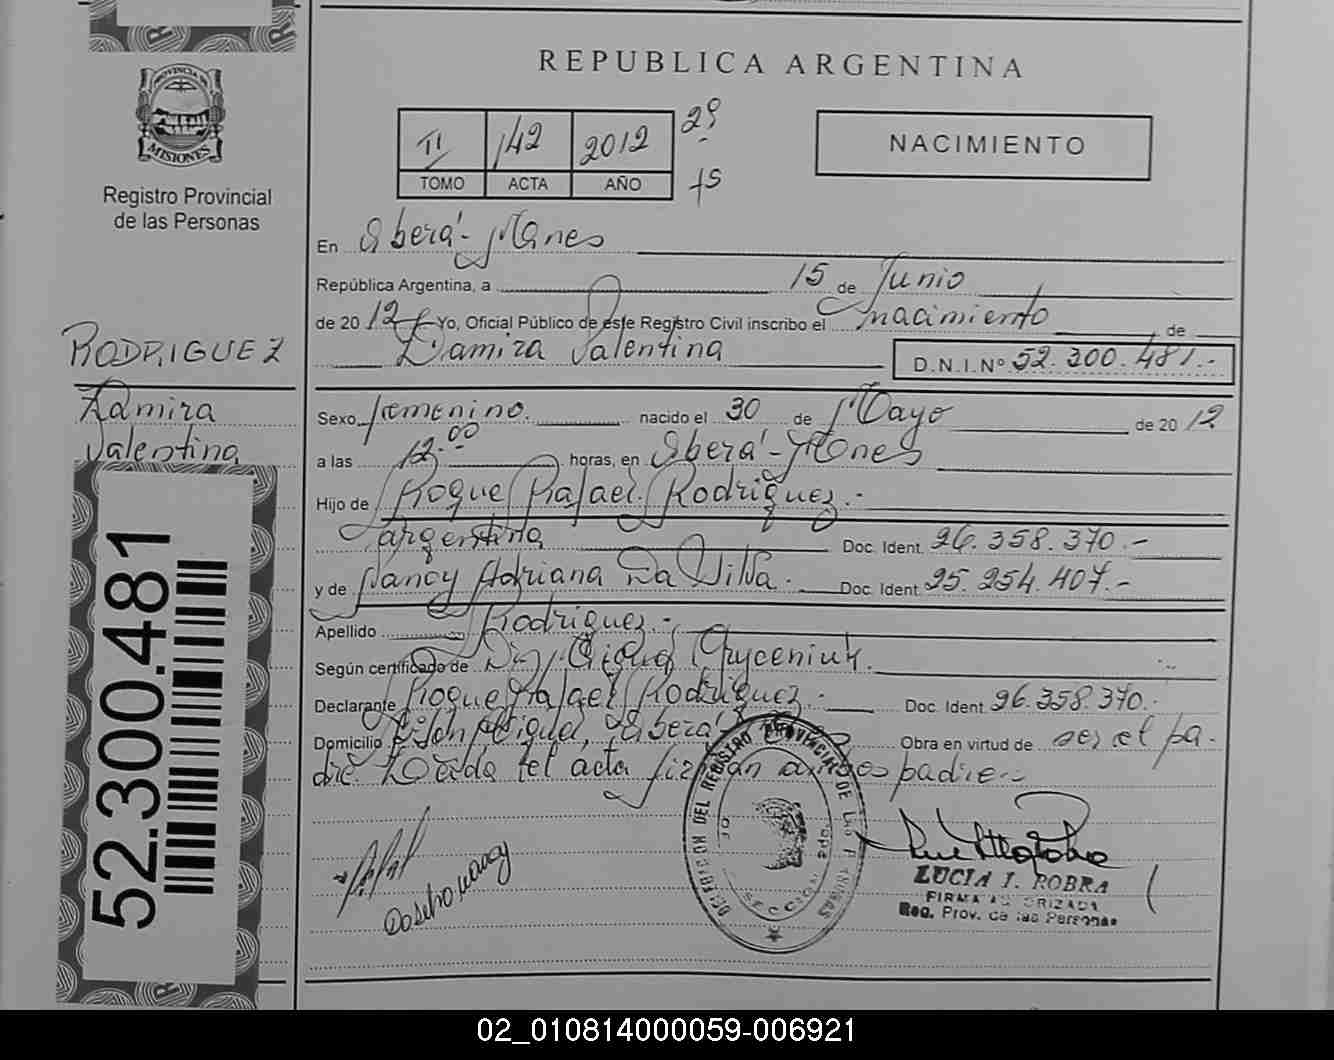 REPUBLICA ARGENTINA
PROVINCIA DE
MISIONES
Registro Provincial
de las Personas
II 142 2012 2º
TOMO ACTA AÑO
NACIMIENTO
En Oberá - Mnes
República Argentina, a 15 de Junio
de 2012 Yo, Oficial Público de este Registro Civil inscribo el nacimiento de
Damira Valentina D.N.I.Nº 52.300.481.-
RODRIGUEZ
Damira
Valentina
Sexo femenino. nacido el 30 de Mayo de 2012
a las 12.00 horas, en Oberá - Mones
Hijo de Roque Rafael Rodriguez.-
argentina Doc. Ident. 26.358.370.-
y de Nancy Adriana Da Silva. Doc. Ident. 25.254.407.-
Apellido Rodriguez.-
Según certificado de Miguel
Declarante Roque Rafael Rodriguez.- Doc. Ident. 26.358.370.-
Domicilio Oberá Obra en virtud de ser el pa-
dre. Leída el acta firman ambos padres
52.300.481
DELEGACION DEL REGISTRO PROVINCIAL DE LAS PERSONAS
SECCION
nancy
LUCIA I. ROBRA
FIRMA AUTORIZADA
Reg. Prov. de las Personas
02_010814000059-006921